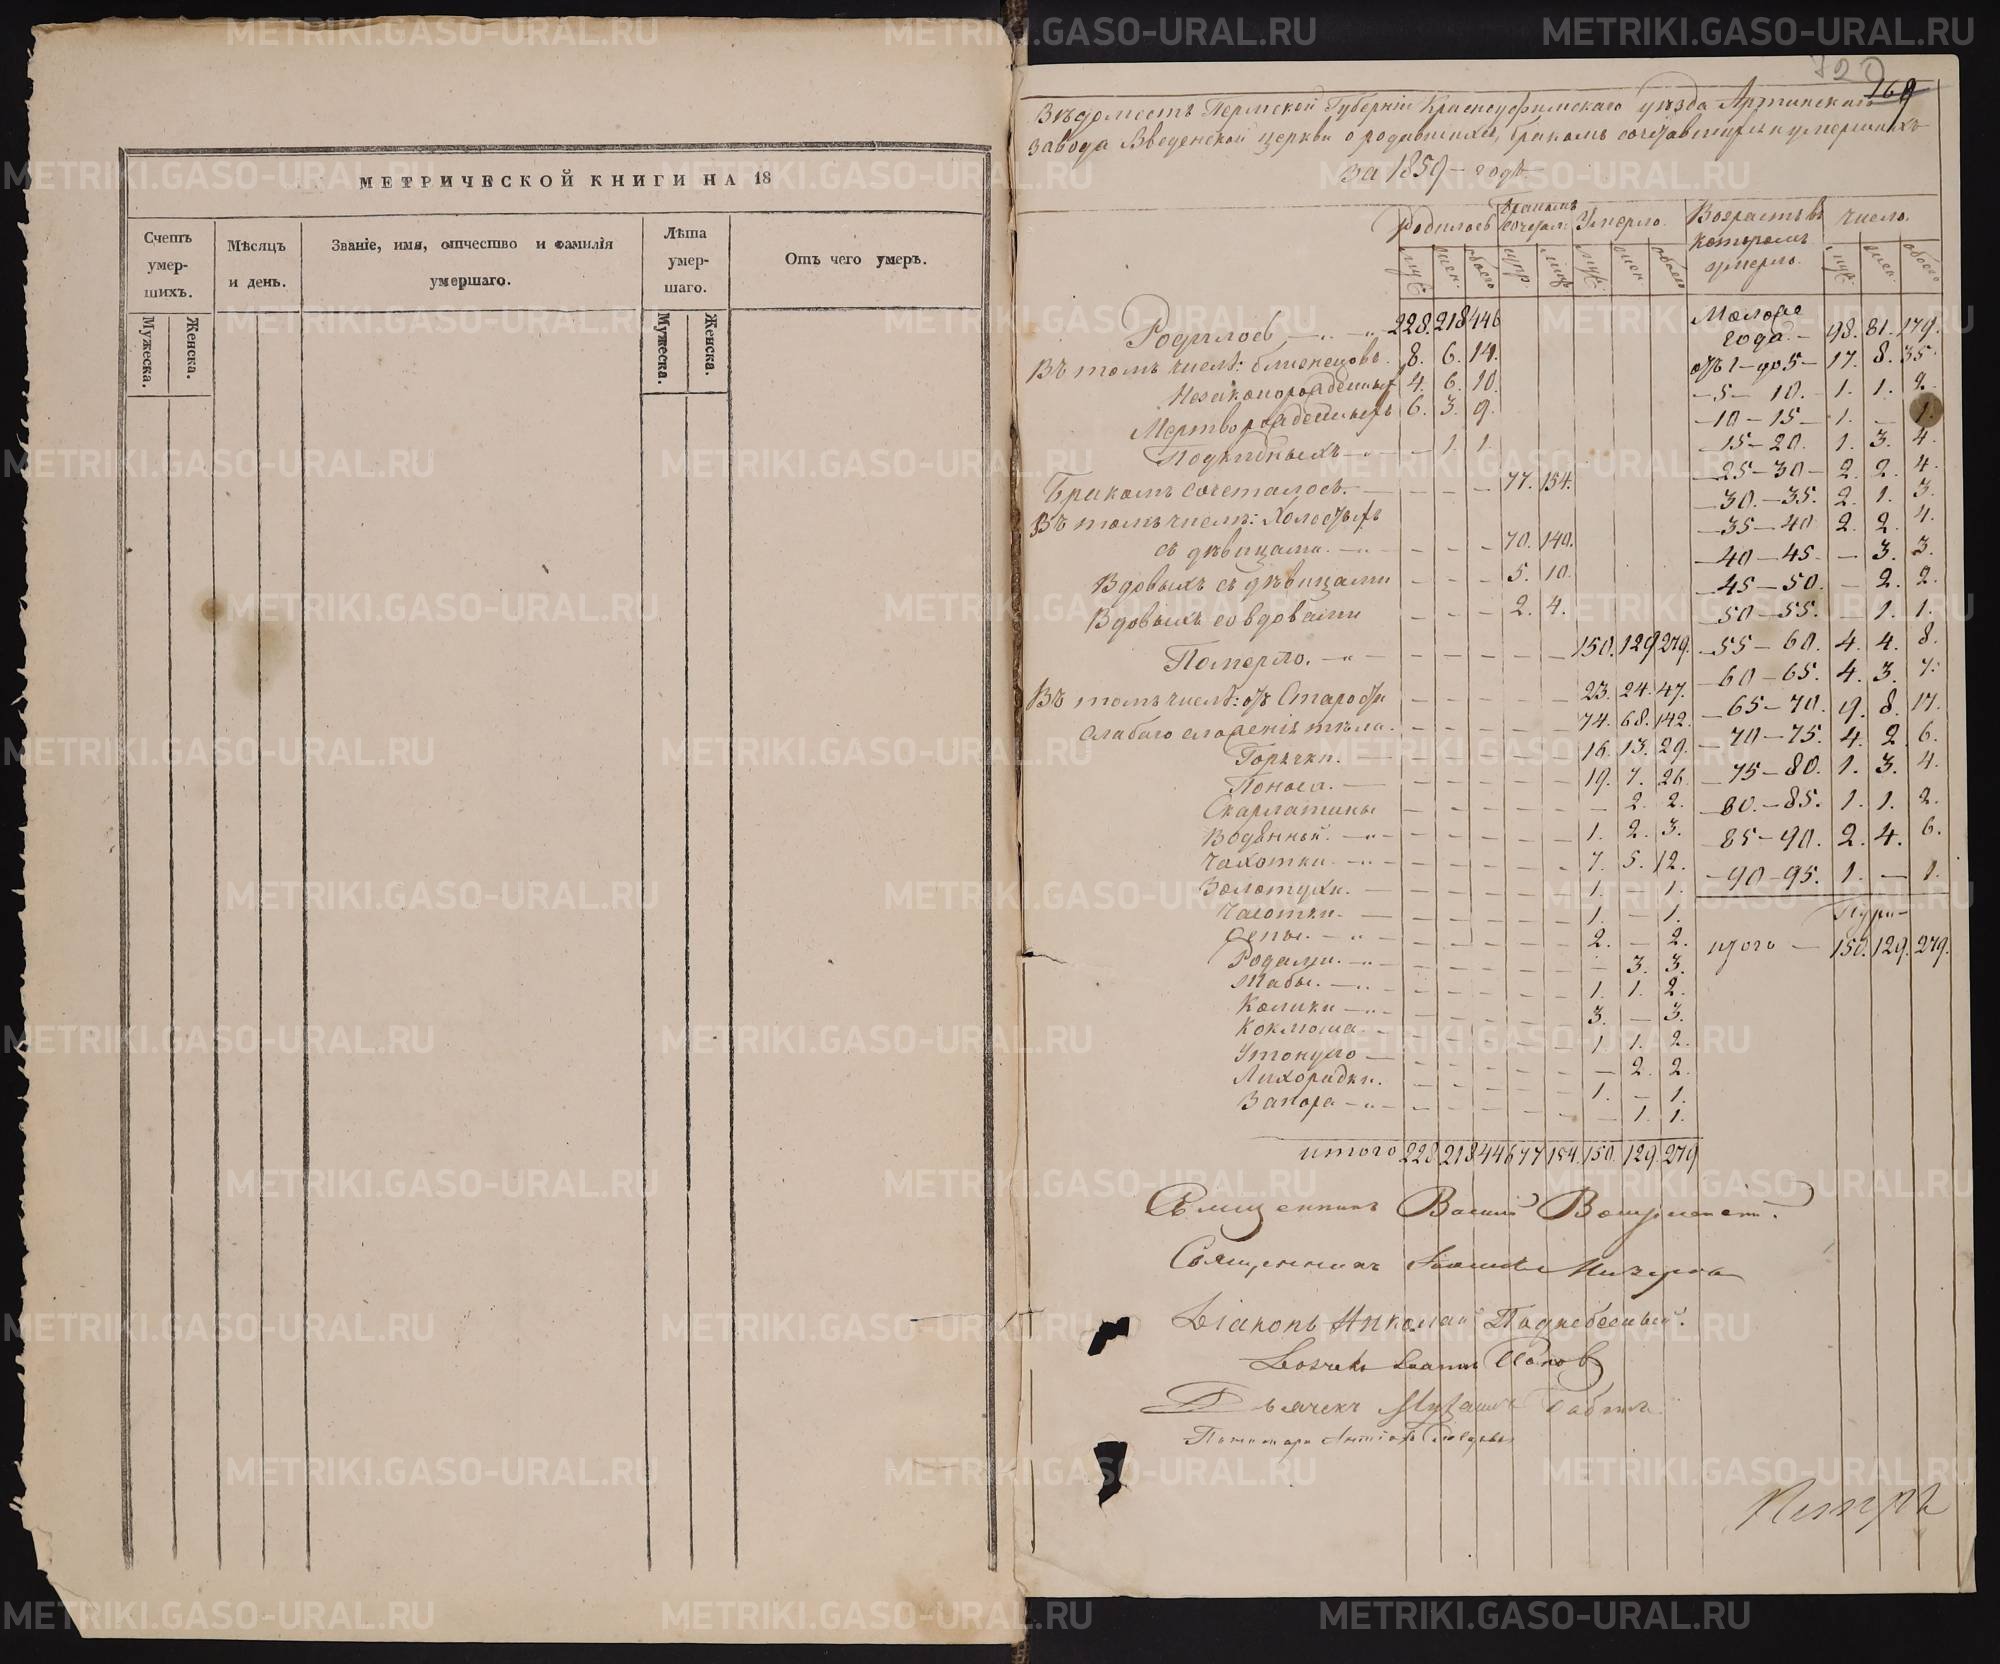 МЕТРИЧЕСКОЙ КНИГИ НА 18
Счетъ умер-шихъ.
Мѣсяцъ и день.
Званіе, имя, отчество и фамилія умершаго.
Лѣта умер-шаго.
Отъ чего умеръ.
Мужеска. Женска.
Мужеска. Женска.
720
169
Вѣдомость Пермской Губерніи Красноуфимскаго уѣзда Артинскаго
завода Введенской церкви о родившихся, бракомъ сочетавшихся и умершихъ
за 1859 - годъ.
Родилось Бракомъ сочетал. Умерло. Возрастъ въ которомъ умерло. число.
муж. жен. обоего супр. лицъ муж. жен. обоего муж. жен. обоего
Родилось, — 228. 218 446
Въ томъ числѣ: близнецовъ. 8. 6. 14.
Незаконорожденныхъ 4. 6. 10.
Мертворожденныхъ 6. 3. 9.
Подкидныхъ — — 1. 1.
Бракомъ сочеталось. — — — — 77. 154.
Въ томъ числѣ: Холостыхъ
съ дѣвицами. — — — — 70. 140.
Вдовыхъ съ дѣвицами — — — 5. 10.
Вдовыхъ со вдовами — — — 2. 4.
Померло. — — — — — — 150. 129 279.
Въ томъ числѣ: отъ Старости — — — — — 23. 24. 47.
слабаго сложенія тѣла. — — — — — 74. 68. 142.
Горячки. — — — — — — 16. 13. 29.
Поноса. — — — — — — 19. 7. 26
Скарлатины — — — — — — 2. 2.
Водянной. — — — — — — 1. 2. 3.
Чахотки. — — — — — — 7. 5. 12.
Золотухи. — — — — — — 1. 1.
Чесотки. — — — — — — 1. — 1.
Оспы. — — — — — — 2. — 2.
Родами. — — — — — — — 3. 3.
Жабы. — — — — — — 1. 1. 2.
Колики — — — — — — 3. — 3.
Коклюша — — — — — — 1. 1. 2.
Утонуло — — — — — — — 2. 2.
Лихорадки. — — — — — 1. — 1.
Запора — — — — — — — 1. 1.
итого 228 218 446 77 154. 150. 129. 279
Моложе года. — 98. 81. 179.
отъ 1 — до 5 — 17. 8. 35.
— 5 — 10. — 1. 1. 2.
— 10 — 15 — 1. — 1.
— 15 — 20. 1. 3. 4.
— 25 — 30 — 2. 2. 4.
— 30. — 35. 2. 1. 3.
— 35 — 40 2. 2. 4.
— 40 — 45. — 3. 3.
— 45 — 50. — 2. 2.
— 50 — 55. — 1. 1.
— 55 — 60. 4. 4. 8.
— 60 — 65. 4. 3. 7.
— 65 — 70. 9. 8. 17.
— 70 — 75. 4. 2. 6.
— 75 — 80. 1. 3. 4.
— 80. — 85. 1. 1. 2.
— 85 — 90. 2. 4. 6.
— 90 — 95. 1. — 1.
итого — 150. 129. 279.
Священникъ Василій
Священникъ
Діаконъ Николай Поднебесный.
Іоаннъ Поповъ
Дьячекъ
Пономарь
Петръ
METRIKI.GASO-URAL.RU